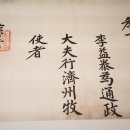 李益泰為通政
大夫行濟州牧
使者